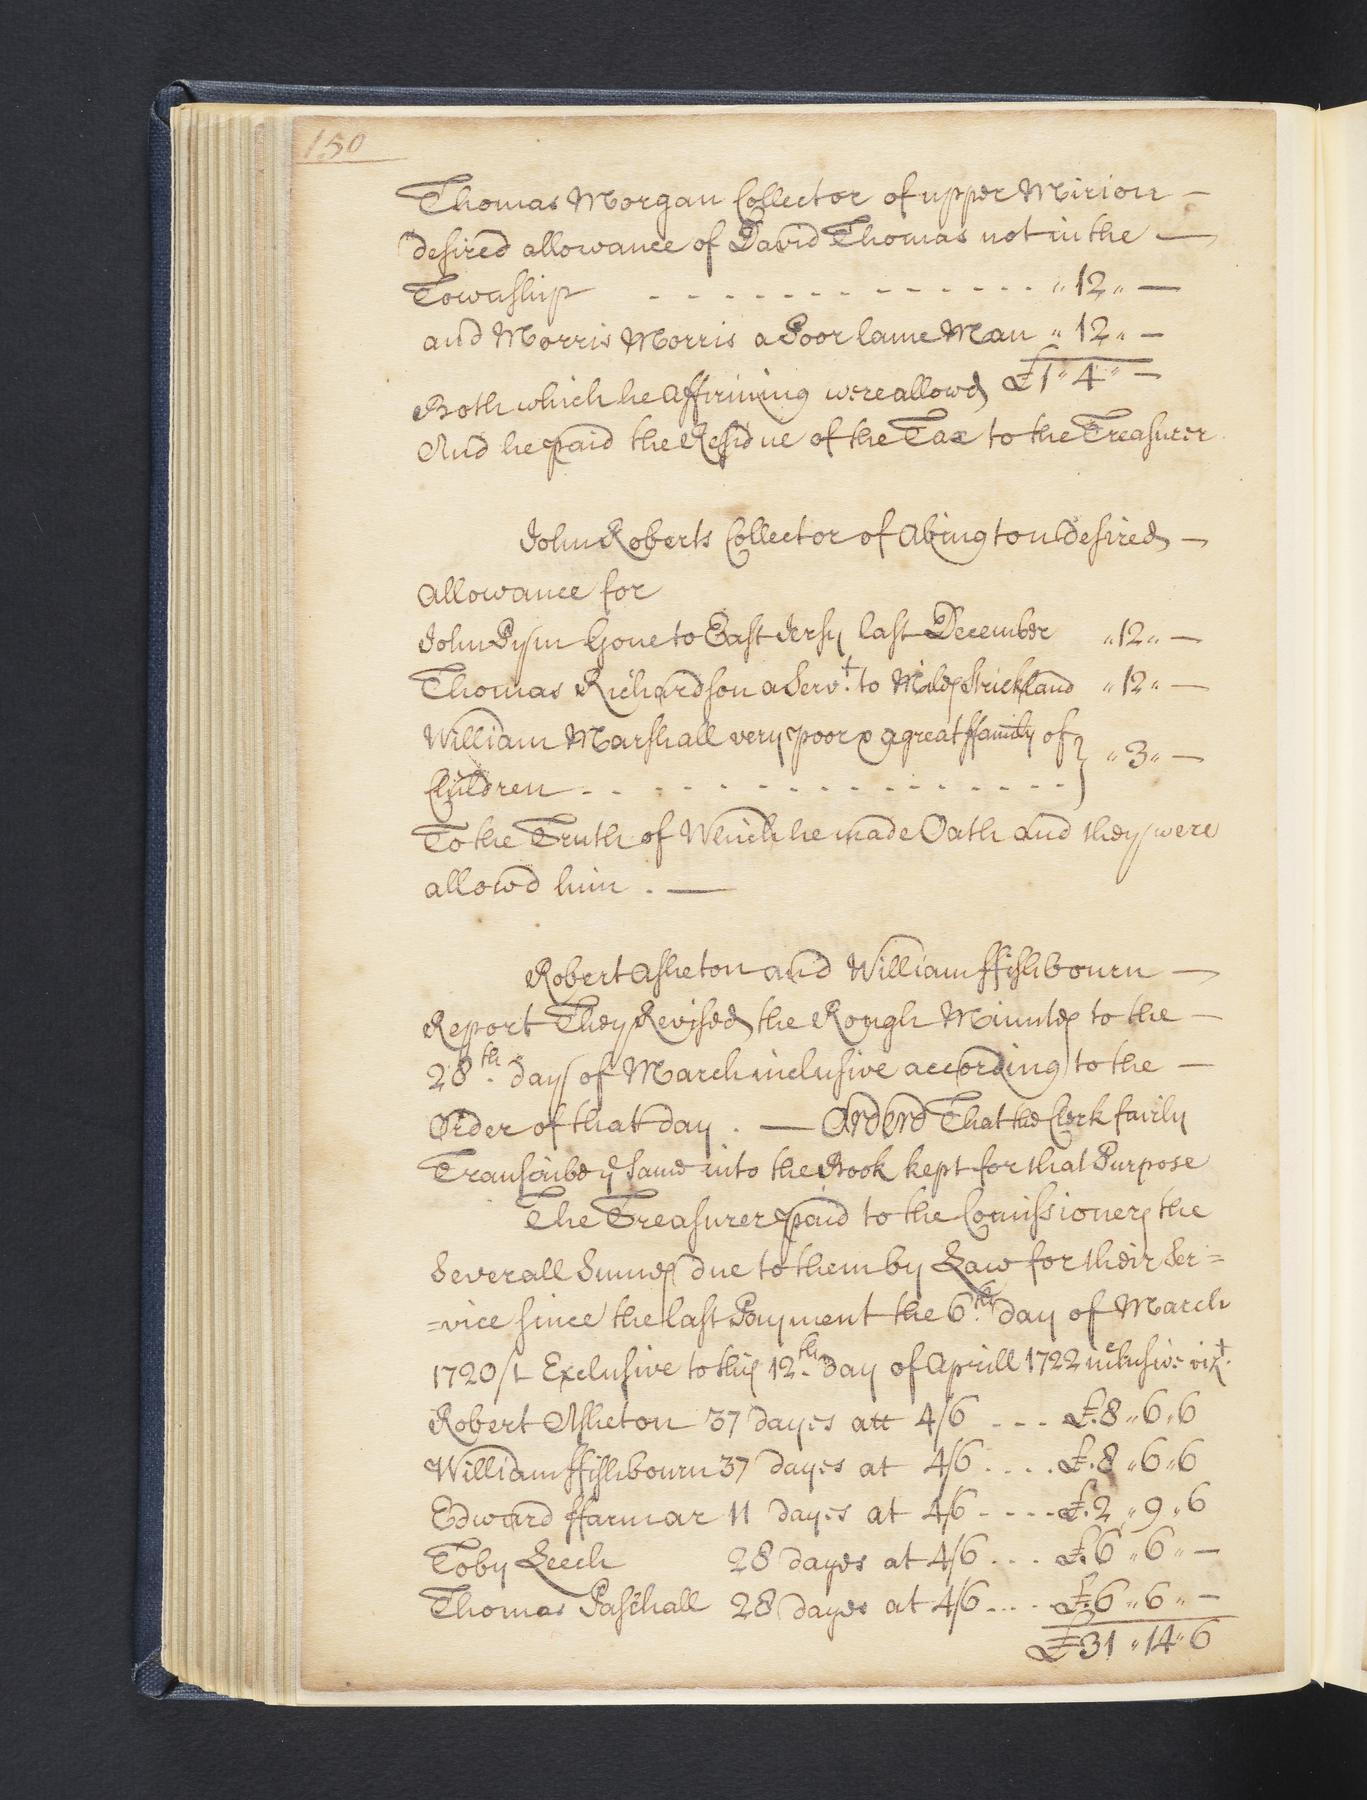 150
Thomas Morgan Collector of upper Mirion —
desired allowance of David Thomas not in the —
Township - - - - - - - - - - - - - " 12 " —
and Morris Morris a Poor lame Man " 12 " —
£1 " 4 " —
Both which he Affirming were allowd
And he paid the Residue of the Tax to the Treasurer
John Roberts Collector of Abington desired —
allowance for
John Gone to East Jersy last December " 12 " —
Thomas Richardson a Servt. to Miles Strickland " 12 " —
William Marshall very poor & a great ffamily of } " 3 " —
Children - - - - - - - - - - - - - - -
To the Truth of Which he made Oath and they were
allowd him . —
Robert Asheton and William ffishbourn —
Report They Revised the Rough Minutes to the —
28th. day of March inclusive according to the —
Order of that day . — Orderd That the Clerk fairly
Transcribe ye same into the Book kept for that Purpose
The Treasurer paid to the Comissioners the
Severall Summes due to them by Law for their Ser=
=vice since the last Payment the 6th. day of March
1720/1 Exclusive to this 12th. day of Aprill 1722 inclusive vizt.
Robert Asheton 37 dayes att 4/6 - - - £.8 " 6 " 6
William ffishbourn 37 dayes at 4/6 . . . . £.8 " 6 " 6
Edward ffarmar 11 dayes at 4/6 - - - - £.2 " 9 " 6
Toby Leech 28 dayes at 4/6 . . . £.6 " 6 " —
Thomas Paschall 28 dayes at 4/6 . . . £.6 " 6 " —
£31 " 14 " 6